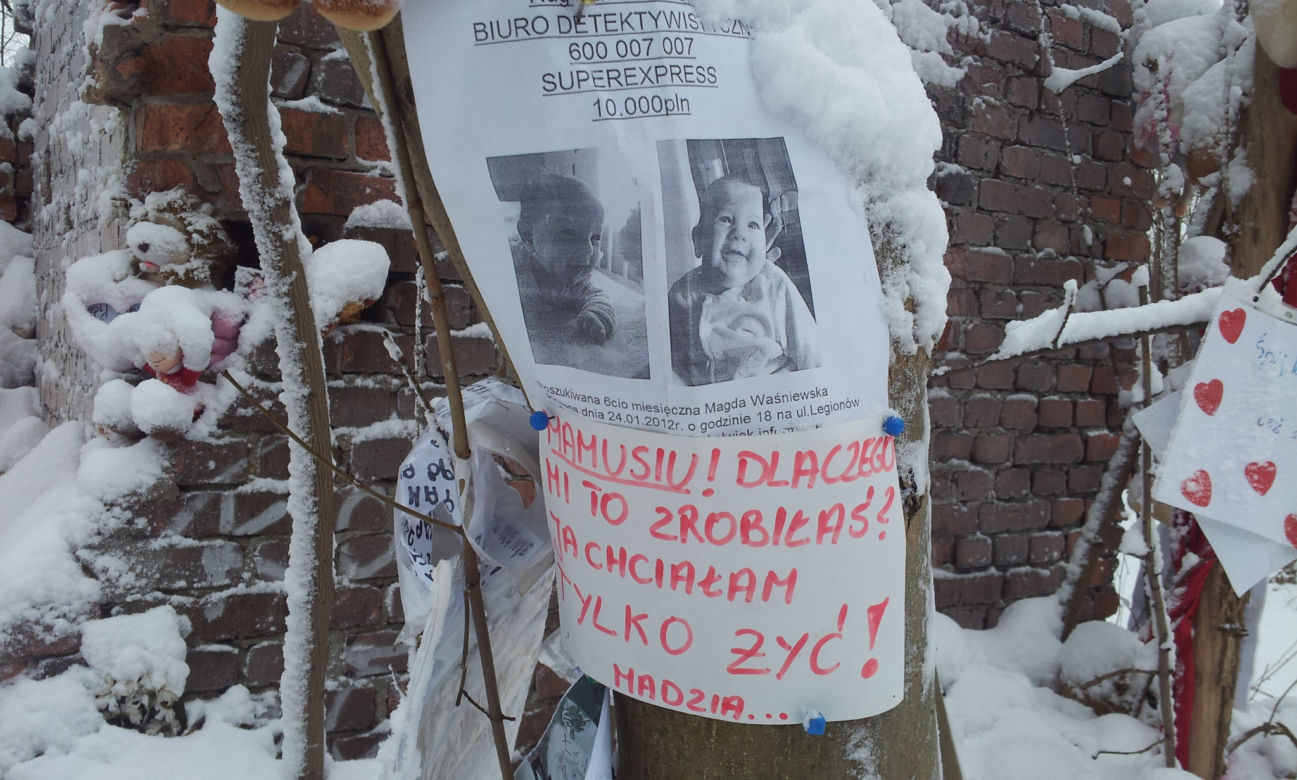 BIURO DETEKTYWISTYCZN
600 007 007
SUPEREXPRESS
10.000pln
oszukiwana 6cio miesięczna Magda Waśniewska
dnia 24.01.2012r. o godzinie 18 na ul.Legionów
MAMUSIU! DLACZEGO
MI TO ZROBIŁAŚ?
JA CHCIAŁAM
TYLKO ŻYĆ!
MADZIA...